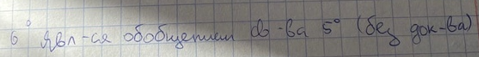 6° Явл-ся обобщением св-ва 5° (без док-ва)